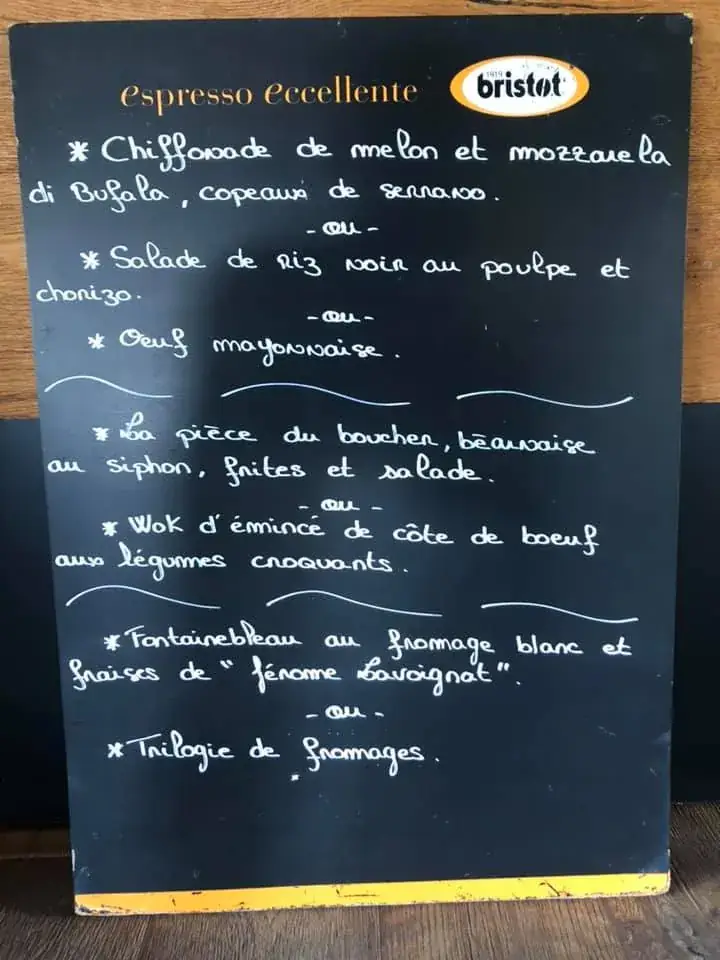 espresso eccellente 1919 bristot
* Chiffonade de melon et mozzarela
di Bufala, copeaux de serrano.
- ou -
* Salade de riz noir au poulpe et
chorizo.
- ou -
* Oeuf mayonnaise.
* La pièce du boucher, béarnaise
au siphon, frites et salade.
- ou -
* Wok d'émincé de côte de boeuf
aux légumes croquants.
* Fontainebleau au fromage blanc et
fraises de "Jérome Lavoignat".
- ou -
* Trilogie de fromages.